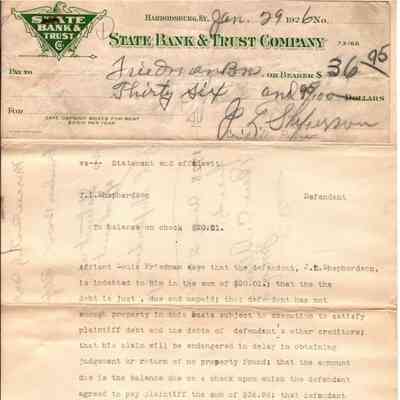 STATE
BANK &
TRUST
Co
HARRODSBURG, KY. Jan. 29 1926 No.
STATE BANK & TRUST COMPANY 73-166
PAY TO Friedman Bros. OR BEARER $ 36 95
Thirty Six and 95/100 DOLLARS
FOR
SAFE DEPOSIT BOXES FOR RENT
J. L. Sheperson
vs-- Statement and affidavit
Shepherdson Defendant
To balance on check $20.01.
Affiant Louis Friedman says that the defendant, Shepherdson,
is indebted to him in the sum of $20.01,; that the the
debt is just , due and unpaid; that defendant has not
enough property in this state subject to execution to satisfy
plaintiff debt and the debts of defendant's other creditors;
that his claim will be endangered in delay in obtaining
judgement or return of no property found; that the amount
due is the balance due on a check upon which the defendant
agreed to pay plaintiff the sum of $36.95; that defendant